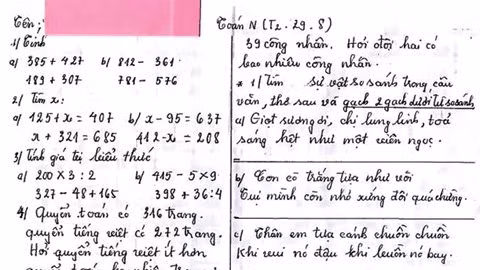 Tên:
1/ Tính
a) 385 + 427 b) 812 - 361
189 + 307 781 - 576
2/ Tìm x:
a) 125 + x = 407 b) x - 95 = 637
x + 321 = 685 412 - x = 208
3/ Tính giá trị biểu thức
a) 200 x 3 : 2 b) 415 - 5 x 9
327 - 48 + 165 398 + 36 : 4
4/ Quyển toán có 316 trang.
quyển tiếng việt có 272 trang.
Hỏi quyển tiếng việt ít hơn
quyển toán bao nhiêu trang
Toán N (T2. 29. 8)
39 công nhân. Hỏi đội hai có
bao nhiêu công nhân.
* 1/ Tìm sự vật so sánh trong câu
văn, thơ sau và gạch 2 gạch dưới từ so sánh
a/ Giọt sương ơi, chị lung linh, toả
sáng hệt như một viên ngọc.
b/ Con cò trắng tựa như vôi
Tụi mình còn nhỏ xứng đôi quá chừng.
c/ Thân em tựa cánh chuồn chuồn
Khi vui nó đậu khi buồn nó bay.